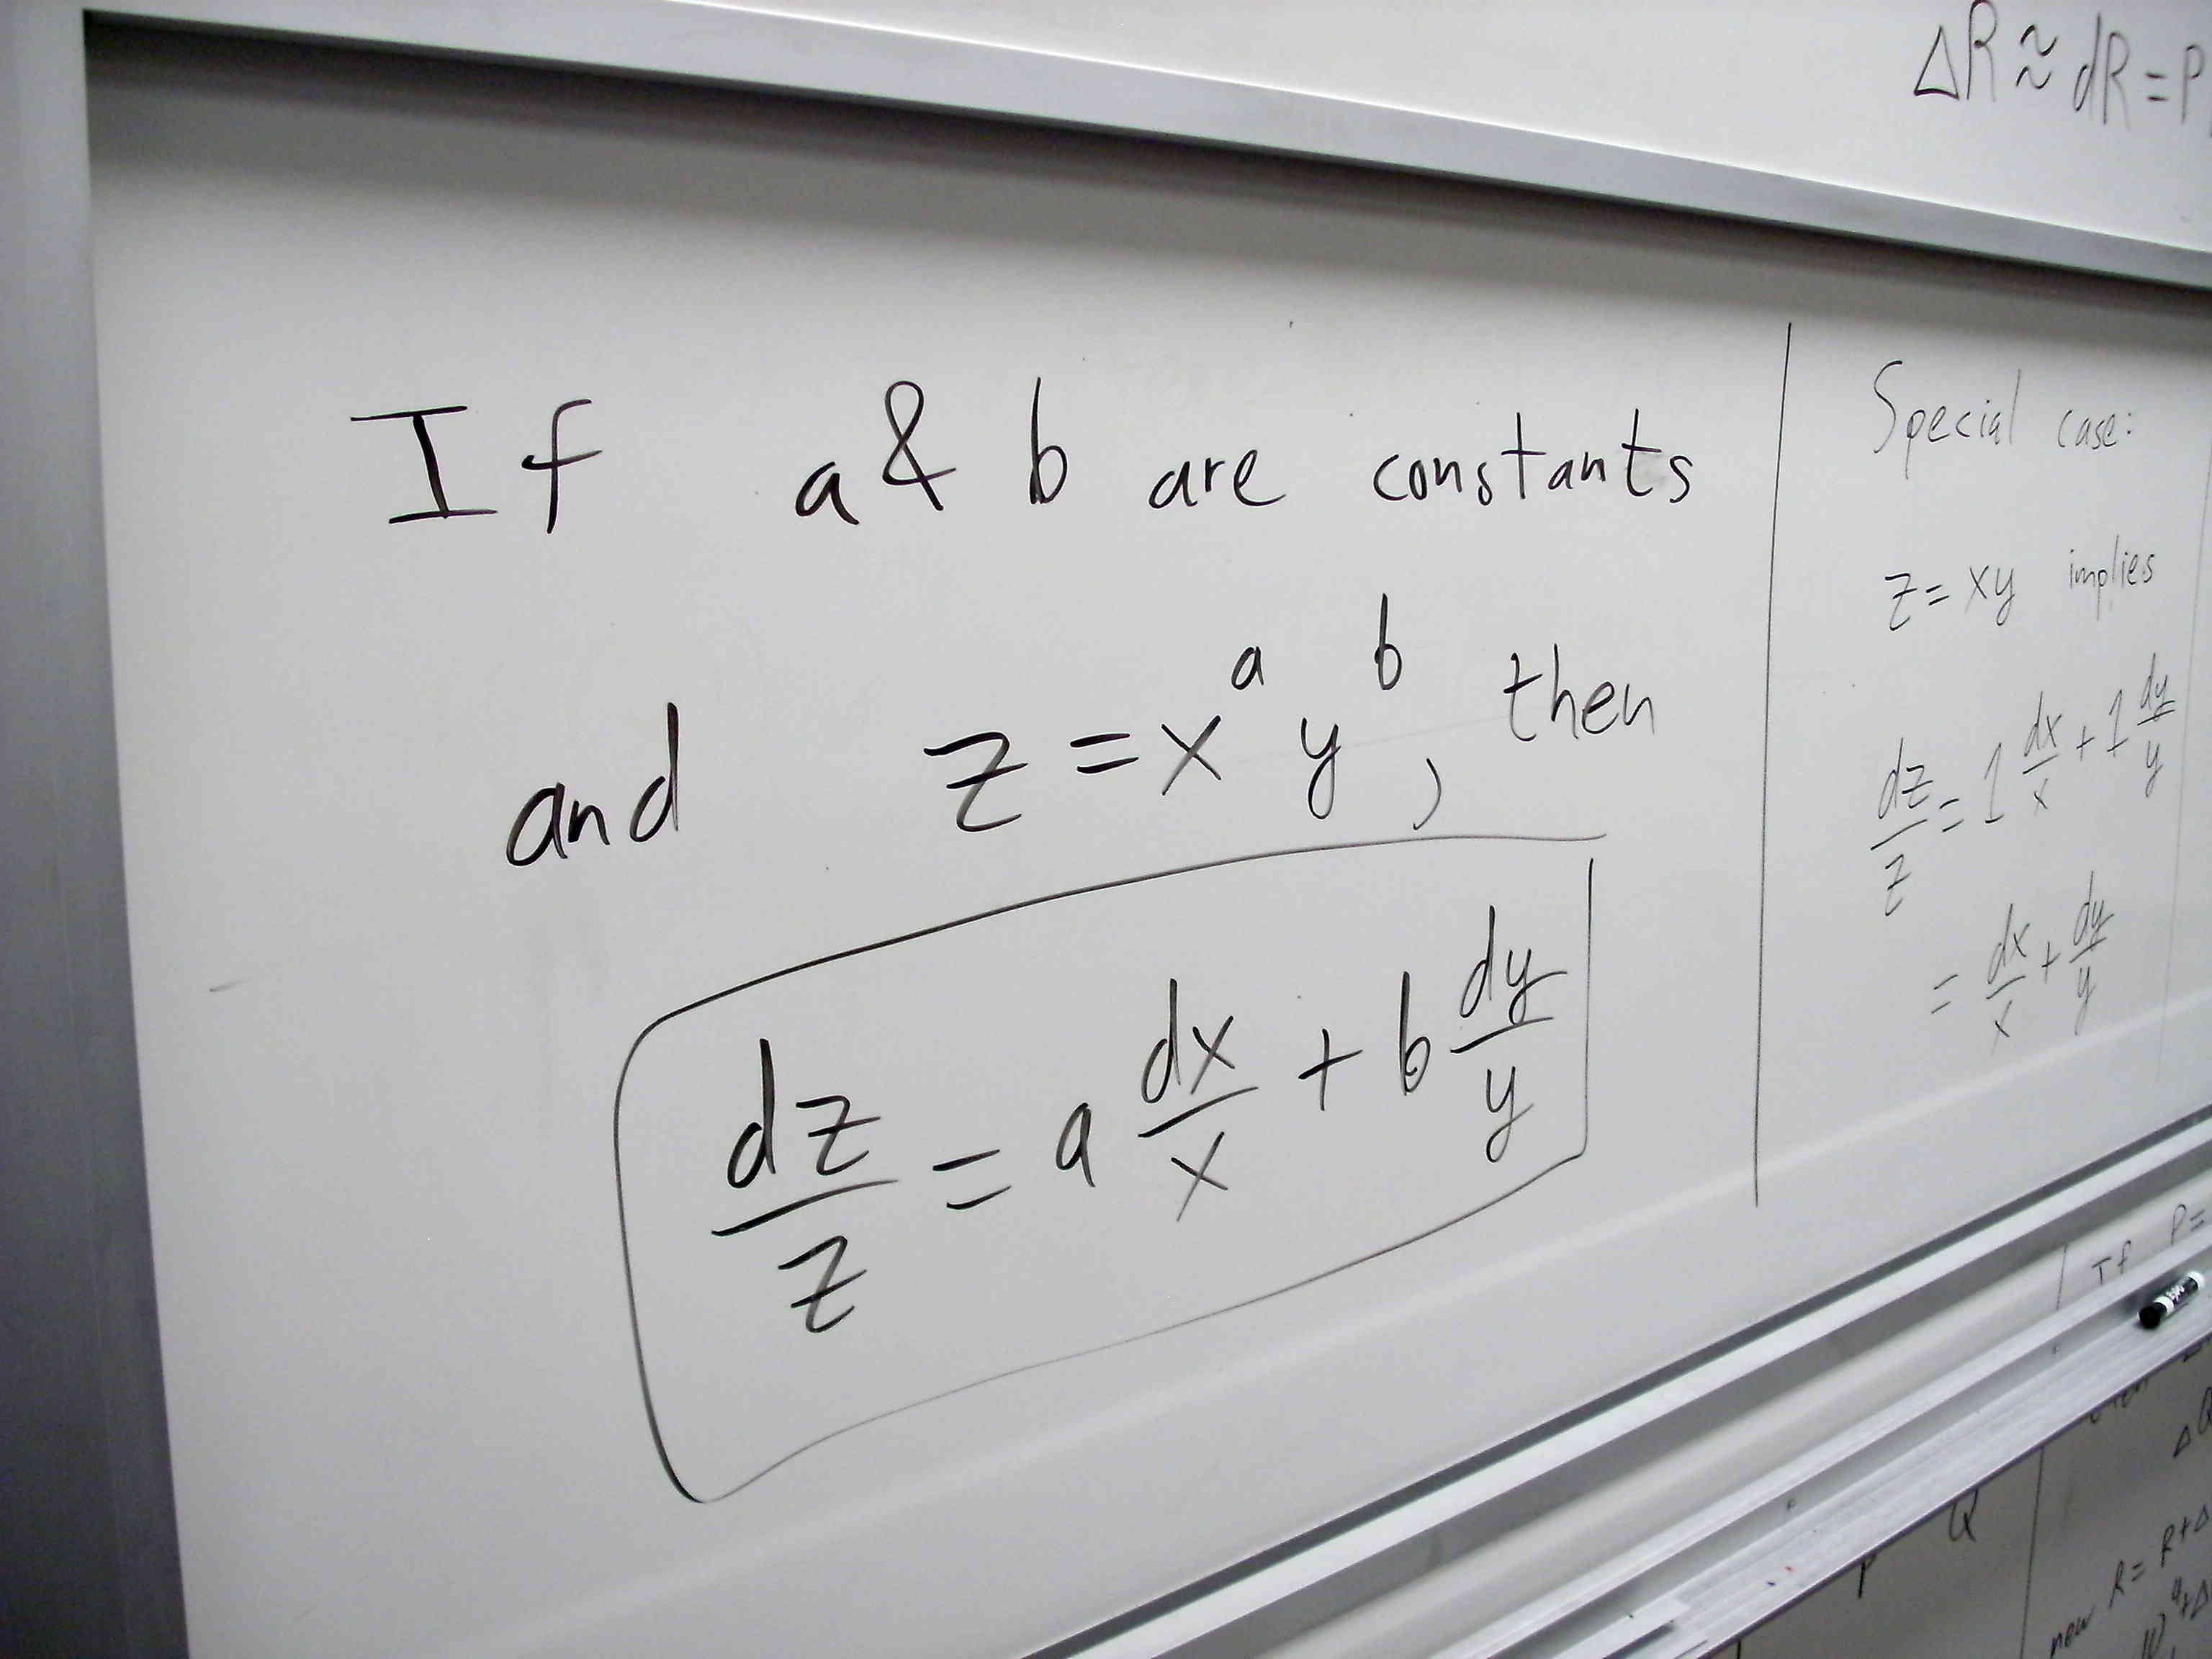 ΔR ≈ dR = P
If a & b are constants
and z = x^a y^b, then
dz/z = a dx/x + b dy/y
Special case:
z = xy implies
dz/z = 1 dx/x + 1 dy/y
= dx/x + dy/y
If P=
ΔQ
Q
new R = R+Δ